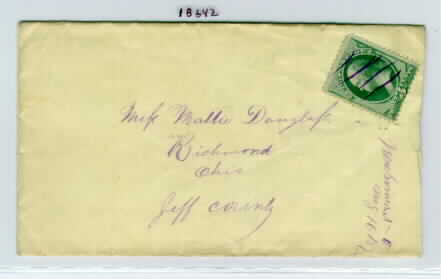 18642
Miss Mattie Douglass
Richmond
Ohio
Jeff County